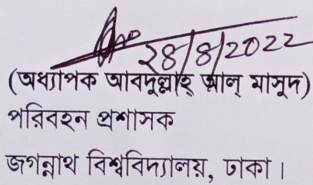 28/8/2022
(অধ্যাপক আবদুল্লাহ্ আল্ মাসুদ)
পরিবহন প্রশাসক
জগন্নাথ বিশ্ববিদ্যালয়, ঢাকা।